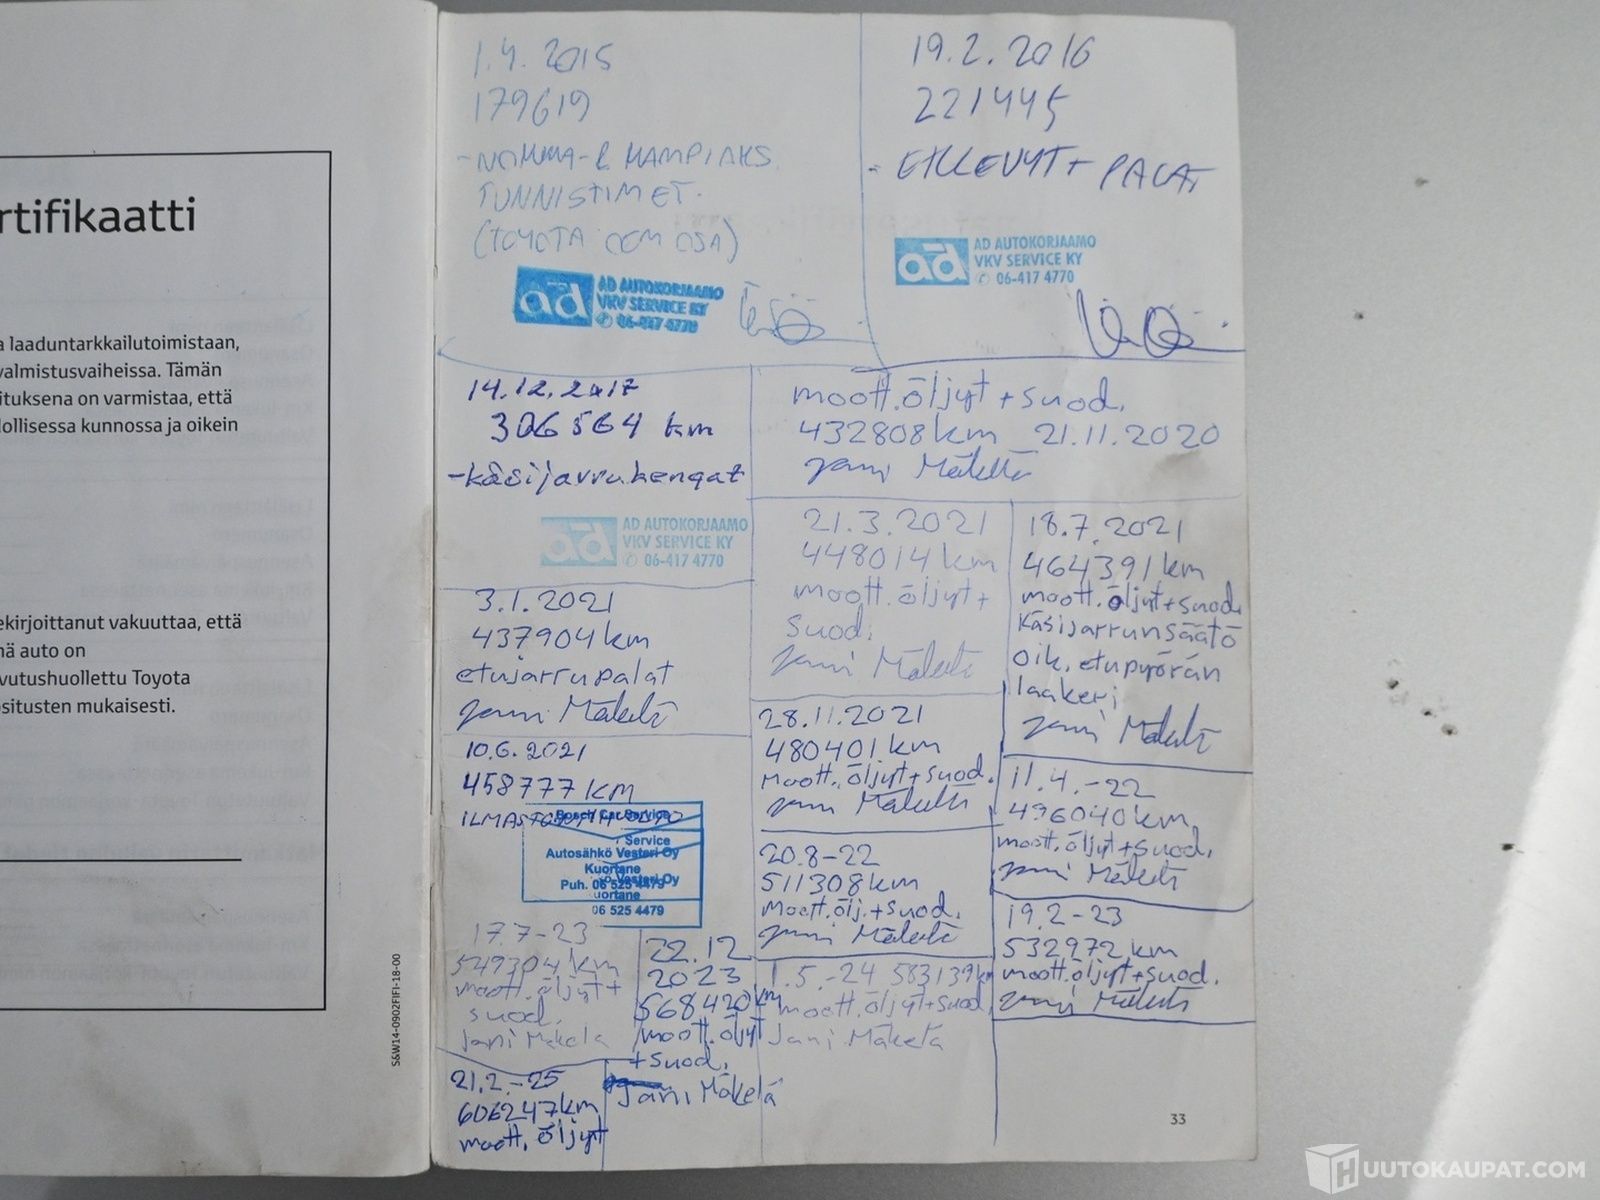 rtifikaatti
a laaduntarkkailutoimistaan,
valmistusvaiheissa. Tämän
ituksena on varmistaa, että
dollisessa kunnossa ja oikein
ekirjoittanut vakuuttaa, että
nä auto on
vutushuollettu Toyota
ositusten mukaisesti.
S&W14-0902FIFI-18-00
1.4.2015
179619
TUNNISTIMET.
(TOYOTA OEM OSA)
ad AD AUTOKORJAAMO
VKV SERVICE KY
06-417 4770
19.2.2016
221445
- ETULEVYT + PALAT
ad AD AUTOKORJAAMO
VKV SERVICE KY
06-417 4770
14.12.2017
306564 km
-käsijarrukengat
ad AD AUTOKORJAAMO
VKV SERVICE KY
06-417 4770
moott.öljyt + suod.
432808km 21.11.2020
Jani Mäkelä
3.1.2021
437904km
etujarrupalat
Jani Mäkelä
21.3.2021
448014km
moott.öljyt+
suod.
Jani Mäkelä
18.7.2021
464391km
moott.öljyt+suod.
Käsijarrunsäätö
oik. etupyörän
laakeri
Jani Mäkelä
10.6.2021
458777 KM
ILMASTOINTIHUOLTO
Bosch Car Service
Service
Autosähkö Vesteri Oy
Kuortane
Puh. 06 525 4479
ö Vesteri Oy
uortane
06 525 4479
28.11.2021
480401km
moott.öljyt+suod.
Jani Mäkelä
11.4.-22
496040km
moott.öljyt+suod.
Jani Mäkelä
20.8-22
511308km
Moott.ölj.+suod.
Jani Mäkelä
19.2-23
532972km
moott.öljyt+suod.
Jani Mäkelä
17.7-23
549304km
moott.öljyt+
suod.
Jani Mäkelä
22.12
2023
568420km
moott.öljyt
+suod.
Jani Mäkelä
1.5.-24 583139km
moott.öljyt+suod.
Jani Mäkelä
21.2.-25
606247km
moott.öljyt
33
HUUTOKAUPAT.COM